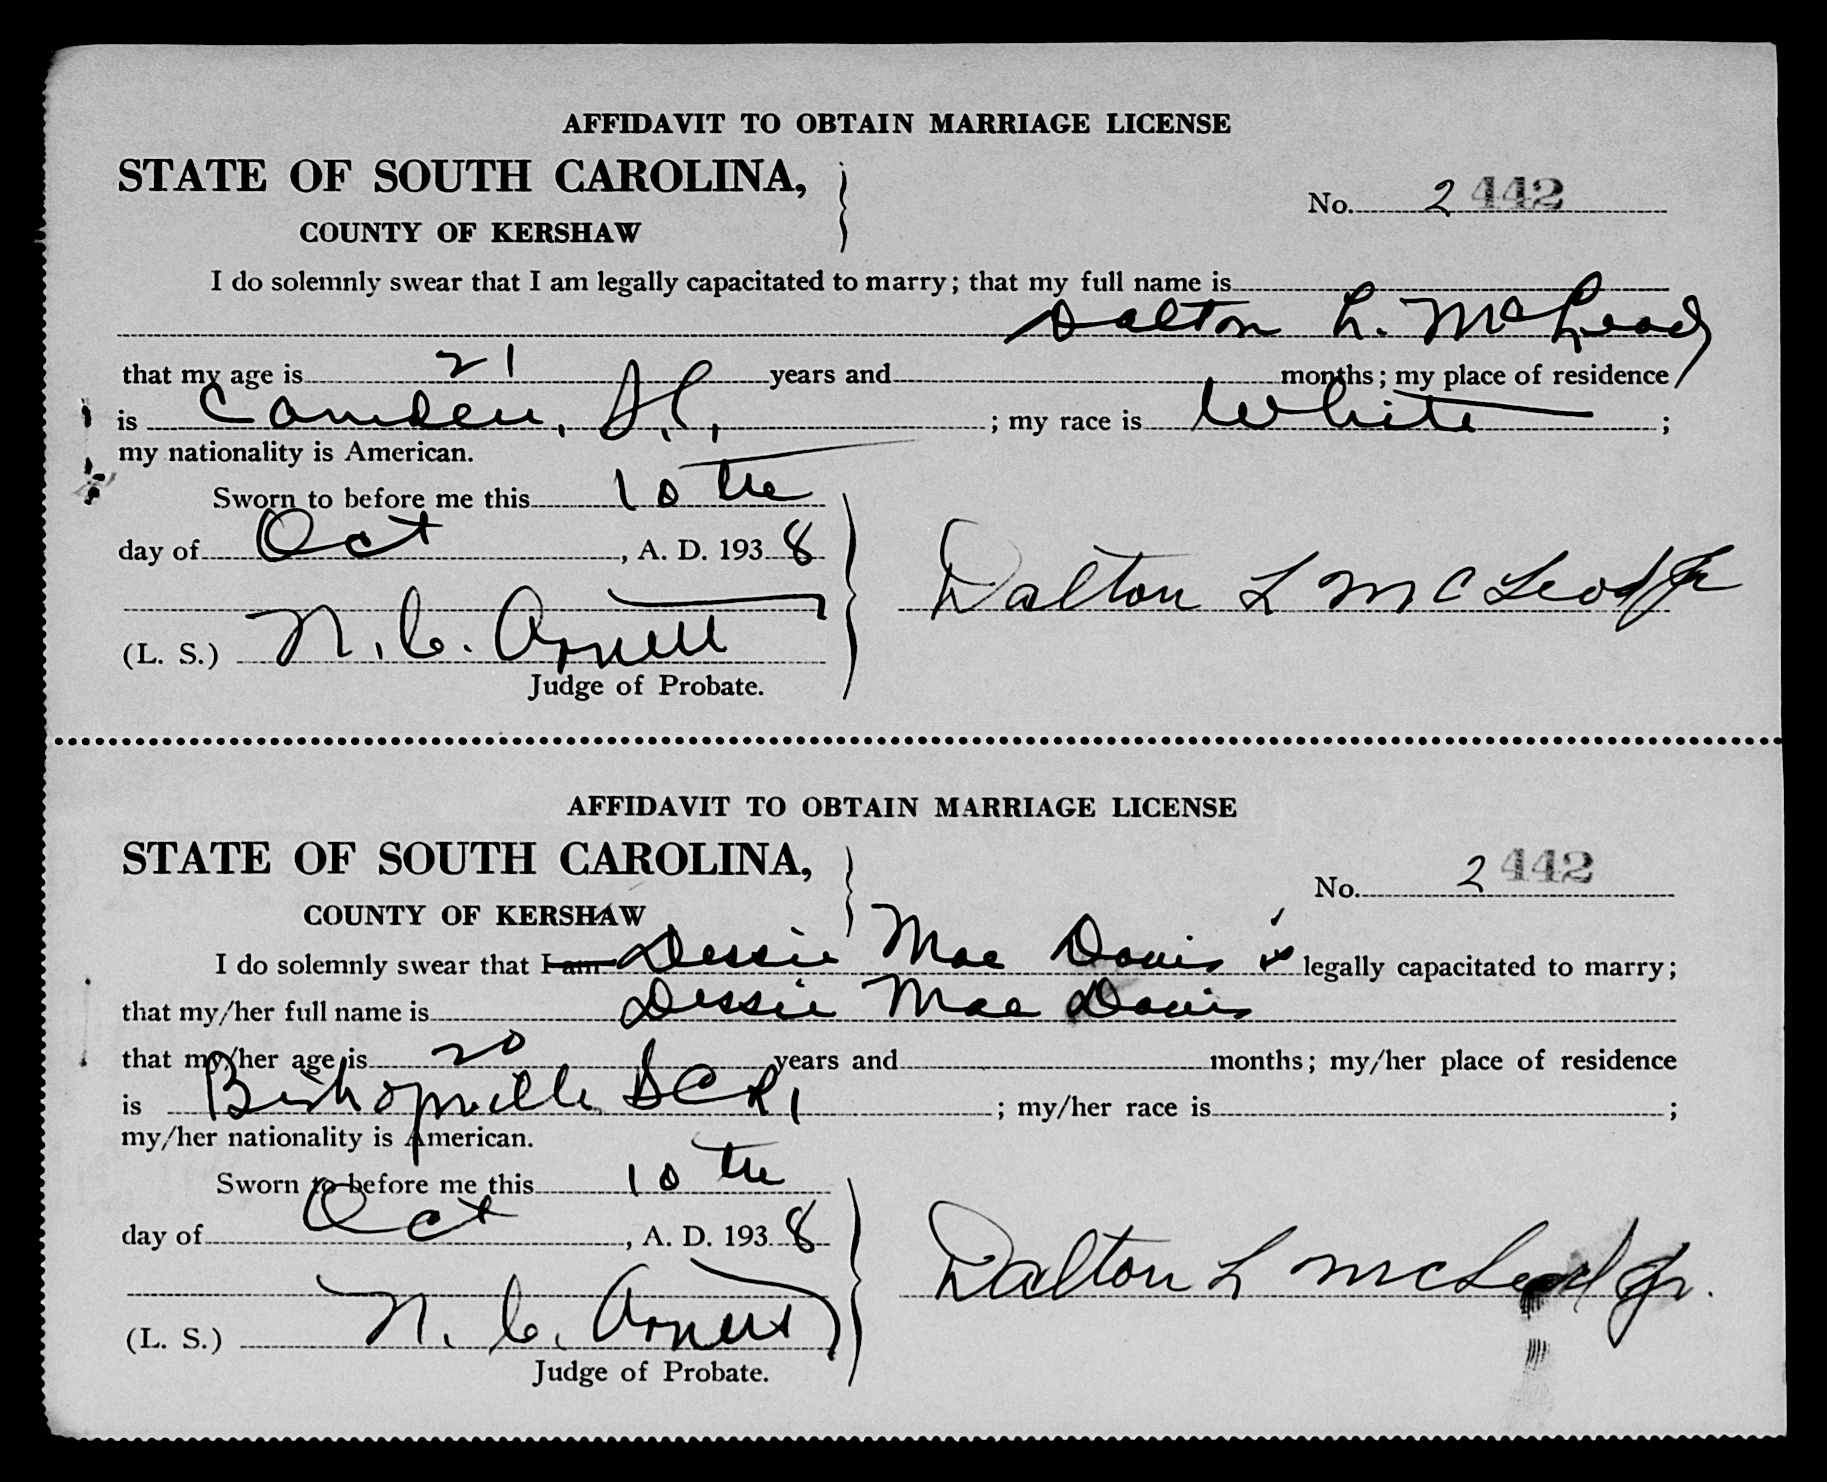 AFFIDAVIT TO OBTAIN MARRIAGE LICENSE
STATE OF SOUTH CAROLINA,
No. 2442
COUNTY OF KERSHAW
I do solemnly swear that I am legally capacitated to marry; that my full name is
Dalton L. McLeod
that my age is 21 years and months; my place of residence
is Camden, S.C., ; my race is White ;
my nationality is American.
Sworn to before me this 10th
day of Oct, A. D. 1938
Dalton L McLeod Jr
(L. S.) N. C. Arnett
Judge of Probate.
AFFIDAVIT TO OBTAIN MARRIAGE LICENSE
STATE OF SOUTH CAROLINA,
No. 2442
COUNTY OF KERSHAW
I do solemnly swear that I am Dessie Mae Davis is legally capacitated to marry;
that my/her full name is Dessie Mae Davis
that my/her age is 20 years and months; my/her place of residence
is Bishopville SC R1 ; my/her race is ;
my/her nationality is American.
Sworn to before me this 10th
day of Oct, A. D. 1938
Dalton L McLeod Jr.
(L. S.) N. C. Arnett
Judge of Probate.